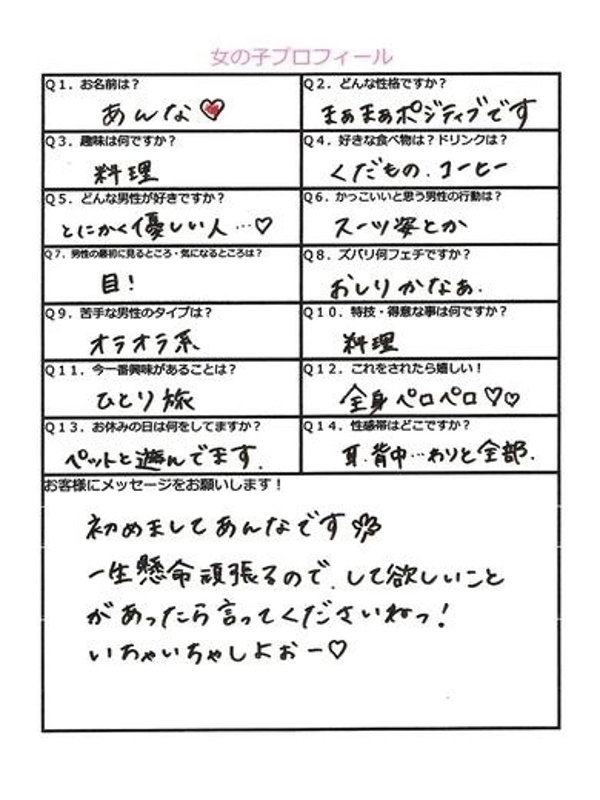 女の子プロフィール
Q1．お名前は？
あんな♥
Q2．どんな性格ですか？
まぁまぁポジティブです
Q3．趣味は何ですか？
料理
Q4．好きな食べ物は？ドリンクは？
くだもの．コーヒー
Q5．どんな男性が好きですか？
とにかく優しい人…♡
Q6．かっこいいと思う男性の行動は？
スーツ姿とか
Q7．男性の最初に見るところ・気になるところは？
目！
Q8．ズバリ何フェチですか？
おしりかなぁ．
Q9．苦手な男性のタイプは？
オラオラ系
Q10．特技・得意な事は何ですか？
料理
Q11．今一番興味があることは？
ひとり旅
Q12．これをされたら嬉しい！
全身ペロペロ♡♡
Q13．お休みの日は何をしてますか？
ペットと遊んでます．
Q14．性感帯はどこですか？
耳．背中…わりと全部．
お客様にメッセージをお願いします！
初めましてあんなです
一生懸命頑張るので．して欲しいこと
があったら言ってくださいねっ！
いちゃいちゃしよぉー♡